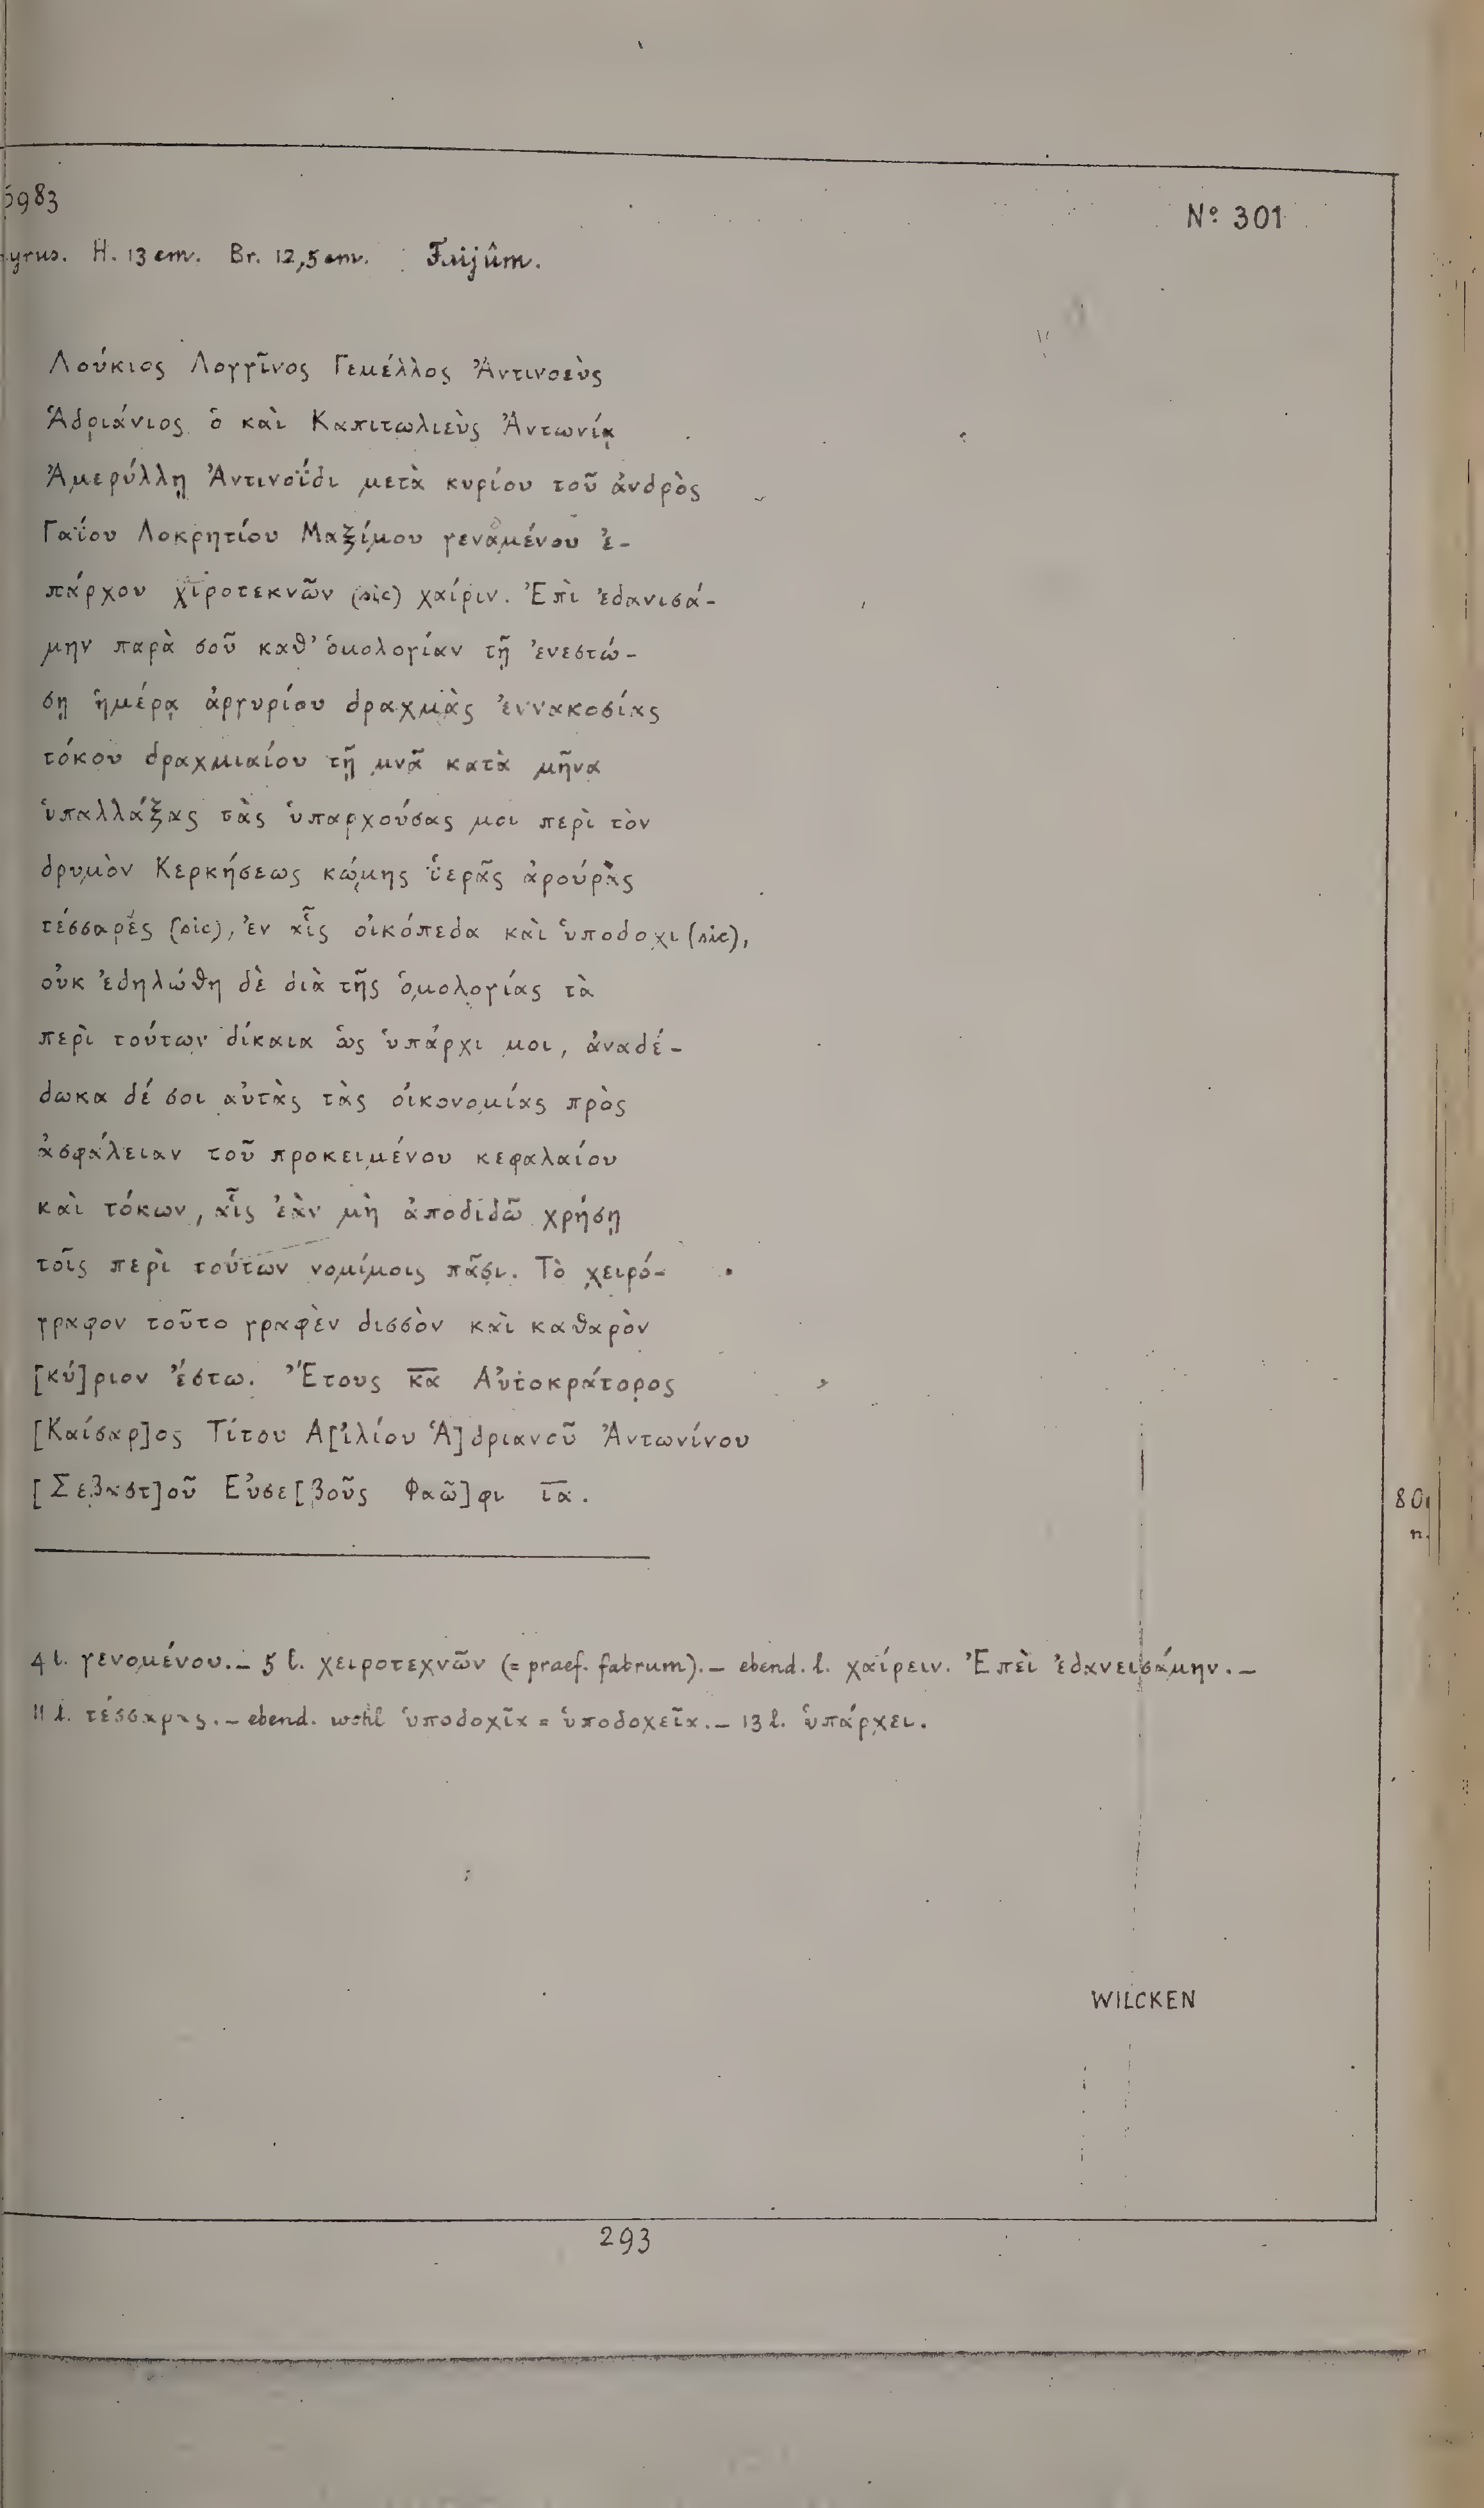 5983
N° 301
yrus. H. 13 cm. Br. 12,5 cm. Faijûm.
Λούκιος Λογγῖνος Γεμέλλος Ἀντινοεὺς
Ἁδριάνιος ὁ καὶ Καπιτωλιεὺς Ἀντωνίᾳ
Ἀμερύλλῃ Ἀντινοΐδι μετὰ κυρίου τοῦ ἀνδρὸς
Γαΐου Λοκρητίου Μαξίμου γεναμένου ἐ-
πάρχου χιροτεκνῶν (sic) χαίριν. Ἐπὶ ἐδανισά-
μην παρὰ σοῦ καθ' ὁμολογίαν τῇ ἐνεστώ-
σῃ ἡμέρᾳ ἀργυρίου δραχμὰς ἐννακοσίας
τόκου δραχμιαίου τῇ μνᾷ κατὰ μῆνα
ὑπαλλάξας τὰς ὑπαρχούσας μοι περὶ τὸν
δρυμὸν Κερκήσεως κώμης ϊερᾶς ἀρούρας
τέσσαρες (sic), ἐν αἷς οἰκόπεδα καὶ ὑποδοχι (sic),
οὐκ ἐδηλώθη δὲ διὰ τῆς ὁμολογίας τὰ
περὶ τούτων δίκαια ὡς ὑπάρχι μοι, ἀναδέ-
δωκα δέ σοι αὐτὰς τὰς οἰκονομίας πρὸς
ἀσφάλειαν τοῦ προκειμένου κεφαλαίου
καὶ τόκων, αἷς ἐὰν μὴ ἀποδιδῶ χρήσῃ
τοῖς περὶ τούτων νομίμοις πᾶσι. Τὸ χειρό-
γραφον τοῦτο γραφὲν δισσὸν καὶ καθαρὸν
[κύ]ριον ἔστω. Ἔτους κ̅α̅ Αὐτοκράτορος
[Καίσαρ]ος Τίτου Α[ἰλίου Ἁ]δριανοῦ Ἀντωνίνου
[Σεβαστ]οῦ Εὐσε[βοῦς Φαῶ]φι ι̅α̅.
4 l. γενομένου. – 5 l. χειροτεχνῶν (= praef. fabrum). – ebend. l. χαίρειν. Ἐπεὶ ἐδανεισάμην. –
11 l. τέσσαρας. – ebend. wohl ὑποδοχῖα = ὑποδοχεῖα. – 13 l. ὑπάρχει.
80
n.
WILCKEN
293